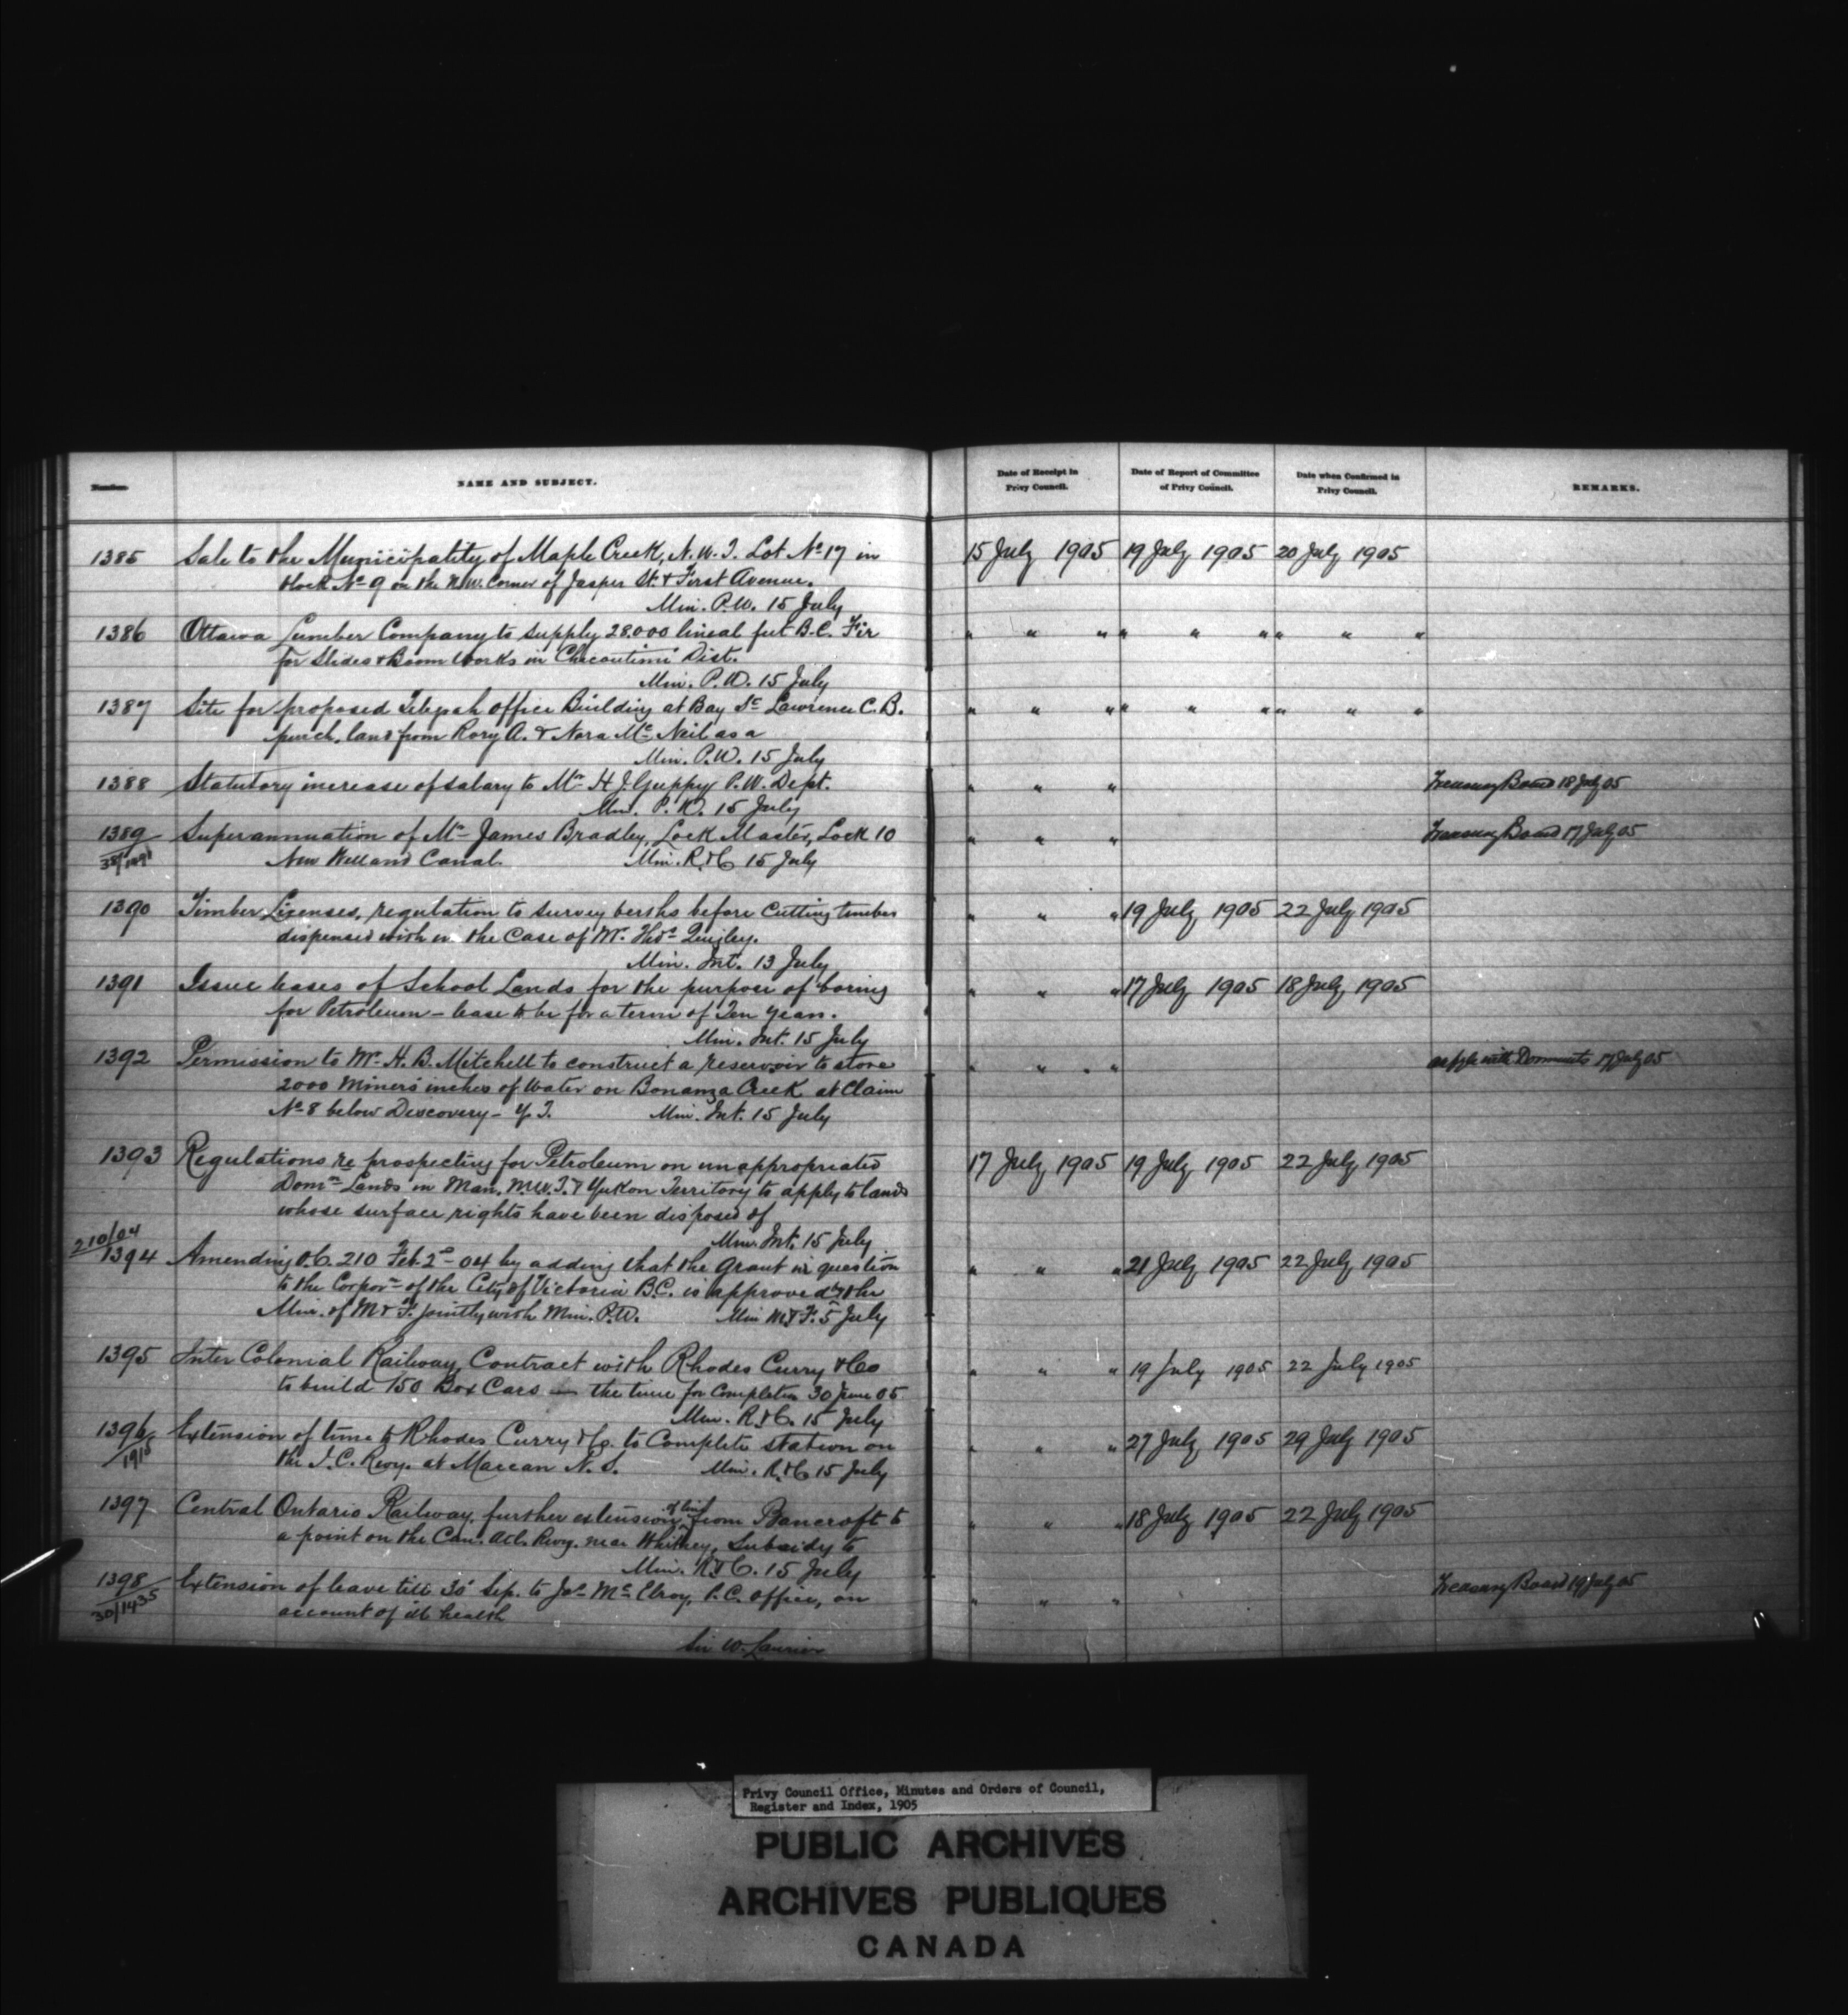 Number.
NAME AND SUBJECT.
Date of Receipt in Privy Council.
Date of Report of Committee of Privy Council.
Date when Confirmed in Privy Council.
REMARKS.
1385 Sale to the Municipality of Maple Creek, N.W.T. Lot No 17 in 15 July 1905 19 July 1905 20 July 1905
block No 9 on the N.W. Corner of Jasper St. & First Avenue.
Min. P.W. 15 July
1386 Ottawa Lumber Company to supply 28.000 lineal feet B.C. Fir " " " " " " " " "
for Slides & Boom Works in Chicoutimi Dist.
Min. P.W. 15 July
1387 Site for proposed Telegah office Building at Bay St Lawrence C.B. " " " " " " " " "
purch. land from Rory A. & Nora Mc Neil as a
Min. P.W. 15 July
1388 Statutory increase of salary to Mr H J. Guppy P.W. Dept. " " " Treasury Board 18 July 05
Min. P.W. 15 July
1389 Superannuation of Mr James Bradley, Lock Master, Lock 10 " " " Treasury Board 17 July 05
New Welland Canal. Min. R.&C 15 July
1390 Timber Licenses, regulation to survey berths before cutting timber " " " 19 July 1905 22 July 1905
dispensed with in the case of Mr. Thos Quigley.
Min. Int. 13 July
1391 Issue leases of School Lands for the purpose of boring " " " 17 July 1905 18 July 1905
for Petroleum - lease to be for a term of Ten years.
Min. Int. 15 July
1392 Permission to Mr. H. B. Mitchell to construct a reservoir to store " " " 17 July 05
2000 Miners inches of Water on Bonanza Creek at Claim
No 8 below Discovery - Y.T. Min. Int. 15 July
1393 Regulations re prospecting for Petroleum on unappropriated 17 July 1905 19 July 1905 22 July 1905
Domn Lands in Man. N.W.T. & Yukon Territory to apply to lands
whose surface rights have been disposed of
Min. Int. 15 July
210/04
1394 Amending O.C. 210 Feb. 2nd 04 by adding that the grant in question " " " 21 July 1905 22 July 1905
to the Corporn of the City of Victoria B.C. is approved by the
Min. of M & F. jointly with Min. P.W. Min M&F. 5 July
1395 Inter Colonial Railway, Contract with Rhodes Curry & Co " " " 19 July 1905 22 July 1905
to build 150 Box Cars — the time for Completion 30 June 05
Min. R.&C. 15 July
1396 Extension of time to Rhodes Curry & Co. to Complete station on " " " 27 July 1905 29 July 1905
/1915 the I.C. Rwy. at Maccan N.S. Min. R.&C 15 July
1397 Central Ontario Railway, further extension of time from Bancroft to " " " 18 July 1905 22 July 1905
a point on the Can. Atl. Rwy. near Whitney, Subsidy to
Min. R.&C. 15 July
1398 Extension of leave till 30 Sep. to Jas Mc Elroy, P.C. Office, on " " " Treasury Board 19 July 05
30/1435 account of ill health
Sir W. Laurier
Privy Council Office, Minutes and Orders of Council,
Register and Index, 1905
PUBLIC ARCHIVES
ARCHIVES PUBLIQUES
CANADA